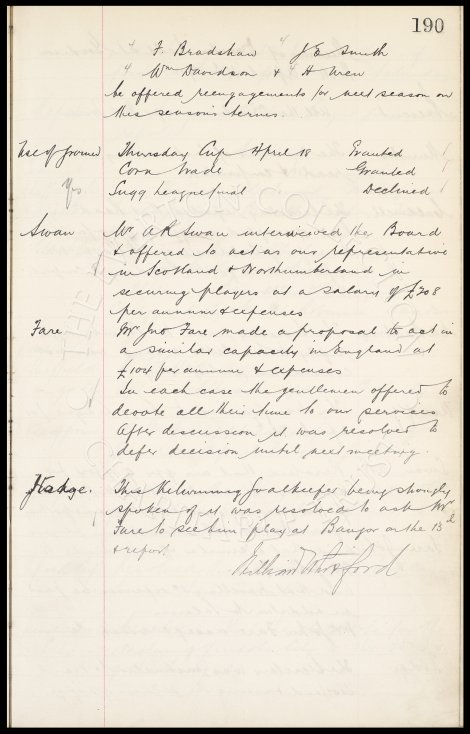 190
" F. Bradshaw " J E Smith
" Wm Davidson & H Wren
be offered reengagements for next season on
this season's terms
Use of ground Thursday Cup April 18 Granted
Corn Trade Granted
Yes Sugg League final Declined
Swan Mr A R Swan interviewed the Board
& offered to act as our representative
in Scotland & Northumberland in
securing players at a salary of £208
per annum & expenses
Fare Mr Jno Fare made a proposal to act in
a similar capacity in England at
£104 per annum & expenses
In each case the gentlemen offered to
devote all their time to our services
After discussion it was resolved to
defer decision until next meeting.
This Goalkeeper being strongly
spoken of it was resolved to ask Mr
Fare to see him play at Bangor on the 13th
& report.